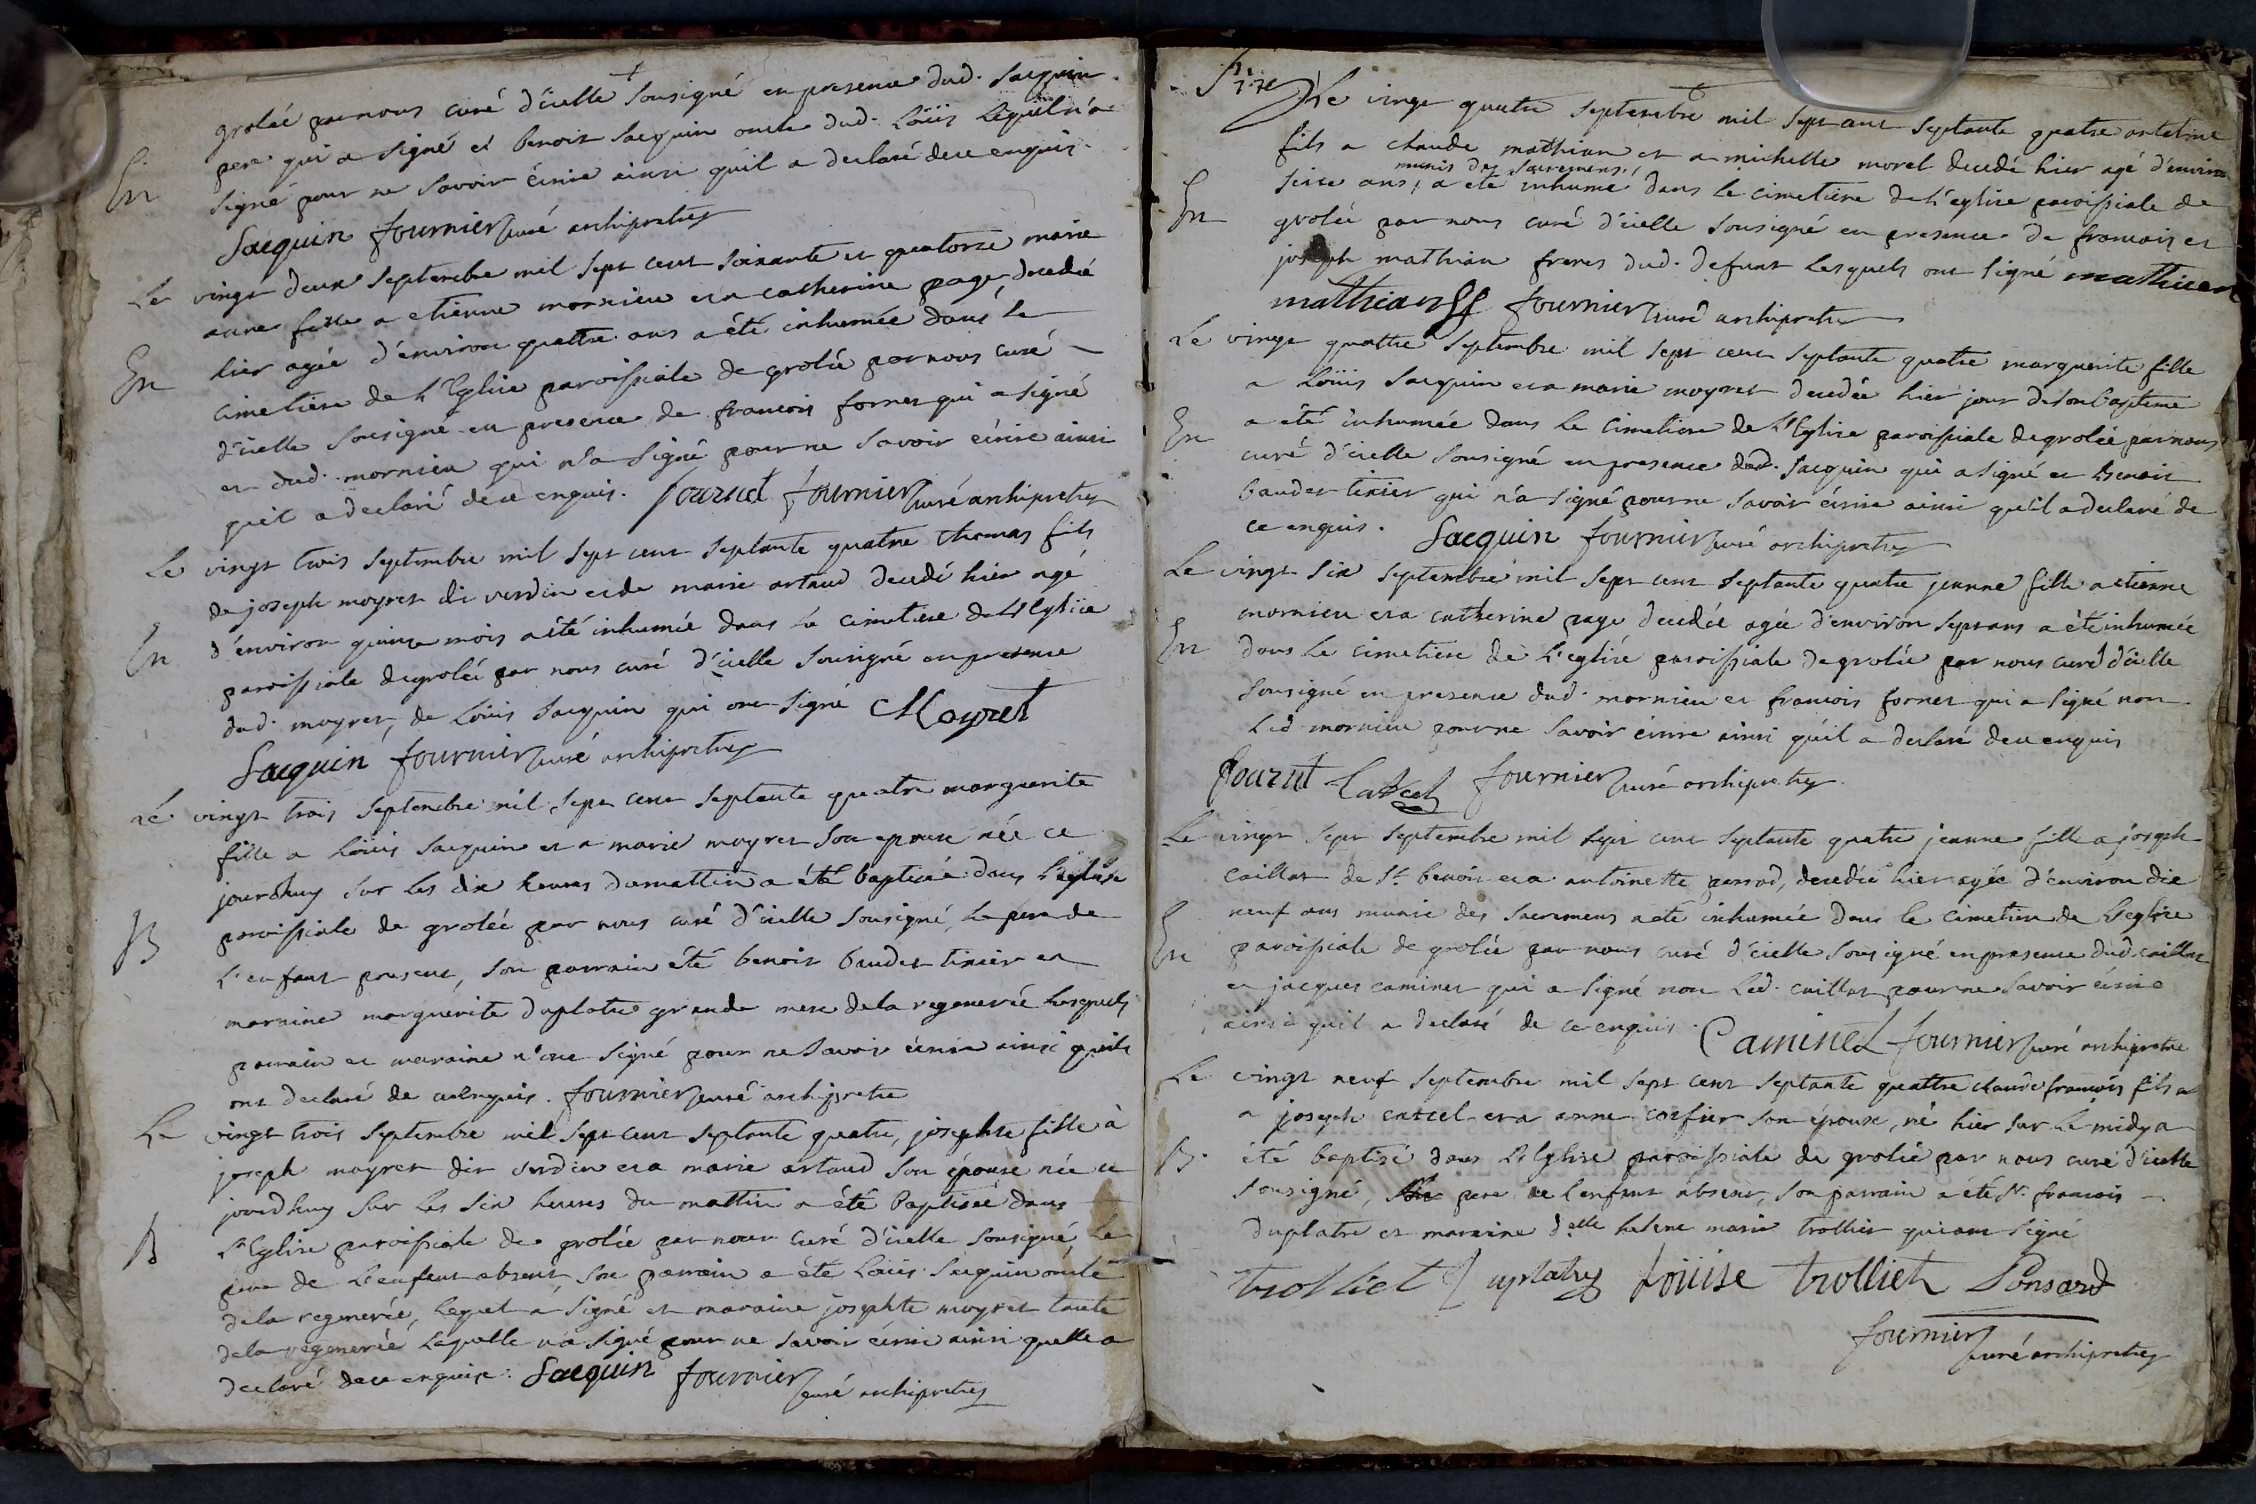 grolée par nous curé d'icelle sousigné en presence dud. Jacquin
pere qui a signé et benoit Jacquin oncle dud. Loüis Lequel n'a
En
signé pour ne savoir écrire ainsi qu'il a declaré de ce enquis.
Jacquin fournier curé archipretre
Le vingt deux septembre mil sept cent soixante et quatorze marie
anne fille a etienne mornieu et a catherine page, decedée
En
hier agée d'environ quattre ans a été inhumée dans le
cimetiere de L'Eglise paroissiale de grolée par nous curé
d'icelle sousigné en presence de francois fornet qui a signé
et dud. mornieu qui n'a signé pour ne savoir écrire ainsi
qu'il a declaré de ce enquis. fournet fournier curé archipretre
Le vingt trois septembre mil sept cent septante quatre thomas fils
de joseph moyret dit verdin et de marie artaud decedé hier agé
En
d'environ quinze mois a été inhumé dans le cimetiere de L'Eglise
paroissiale de grolée par nous curé d'icelle sousigné en presence
dud. moyret, de Loüis Jacquin qui ont signé Moyret
Jacquin fournier curé archipretre
Le vingt trois septembre mil sept cent septante quatre marguerite
fille a Loüis Jacquin et a marie moyret son epouse née ce
jourdhuy sur les dix heures du mattin a été baptisée dans L'eglise
B
paroissiale de grolée par nous curé d'icelle sousigné, le pere de
L'enfant present, son parrain été benoit baudet tixier et
marraine marguerite duplatre grande mere de la regenerée lesquels
parrain et maraine n'ont signé pour ne savoir écrire ainsi qu'ils
ont declaré de ce enquis. fournier curé archipretre
Le vingt trois septembre mil sept cent septante quatre, josephte fille à
joseph moyret dit verdin et a marie artaud son épouse née ce
jourdhuy sur les six heures du mattin a été baptisée dans
B
L'Eglise paroissiale de grolée par nous curé d'icelle sousigné Le
pere de L'enfant absent, son parrain a été Loüis Jacquin oncle
de la regenerée, lequel a signé et maraine josephte moyret tante
de la regenerée laquelle n'a signé pour ne savoir écrire ainsi quelle a
declaré de ce enquise. Jacquin fournier curé archipretre
Le vingt quatre septembre mil sept cent septante quatre antelme
fils a claude mathian et a michelle morel decedé hier agé d'environ
munis des sacremens,
seize ans, a été inhumé dans le cimetiere de L'eglise paroissiale de
En
grolée par nous curé d'icelle sousigné en presence de francois et
joseph mathian freres dud. defunt lesquels ont signé mathian
mathian fournier curé archipretre
Le vingt quattre septembre mil sept cent septante quatre marguerite fille
a Loüis Jacquin et a marie moyret decedée hier jour de son bapteme
En
a été inhumée dans le cimetiere de L'Eglise paroissiale de grolée par nous
curé d'icelle sousigné en presence dud. Jacquin qui a signé et benoit
baudet tixier qui n'a signé pour ne savoir écrire ainsi qu'il a declaré de
ce enquis. Jacquin fournier curé archipretre
Le vingt six septembre mil sept cent septante quatre jeanne fille a etienne
mornieu et a catherine page decedée agée d'environ sept ans a été inhumée
En
dans le cimetiere de L'eglise paroissiale de grolée par nous curé d'icelle
sousigné en presence dud. mornieu et francois fornet qui a signé non
Led mornieu pour ne savoir écrire ainsi qu'il a declaré de ce enquis
fournet fournier curé archipretre
Le vingt sept septembre mil sept cent septante quatre jeanne fille a joseph
caillat de St. benoit et a antoinette perrod, decedée hier agée d'environ dix
neuf ans munie des sacremens a été inhumée dans le cimetiere de L'eglise
En
paroissiale de grolée par nous curé d'icelle sousigné en presence dud. caillat
et jacques caminet qui a signé non Led. caillat pour ne savoir écrire
ainsi qu'il a declaré de ce enquis. Caminet fournier curé archipretre
Le vingt neuf septembre mil sept cent septante quattre claude francois fils
a joseph catcel et a anne corfier son épouse, né hier sur le midy a
B.
été baptisé dans L'Eglise paroissiale de grolée par nous curé d'icelle
sousigné, pere de l'enfant absent, son parrain a été Sr. francois
duplatre et maraine d.elle helene marie trolliet qui ont signé
trolliet Duplatre Loüise trolliet Ponsard
fournier curé archipretre